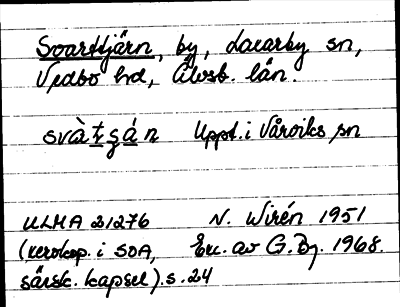 Svarttjärn, by, Laxarby sn,
Vedbo hd, Älvsb. län.
svàt̲s̲án Uppt. i Vårviks sn
ULMA 21276 N. Wirén 1951
(xerokop. i SOA, Exc. av G. By. 1968.
särsk. kapsel). s. 24